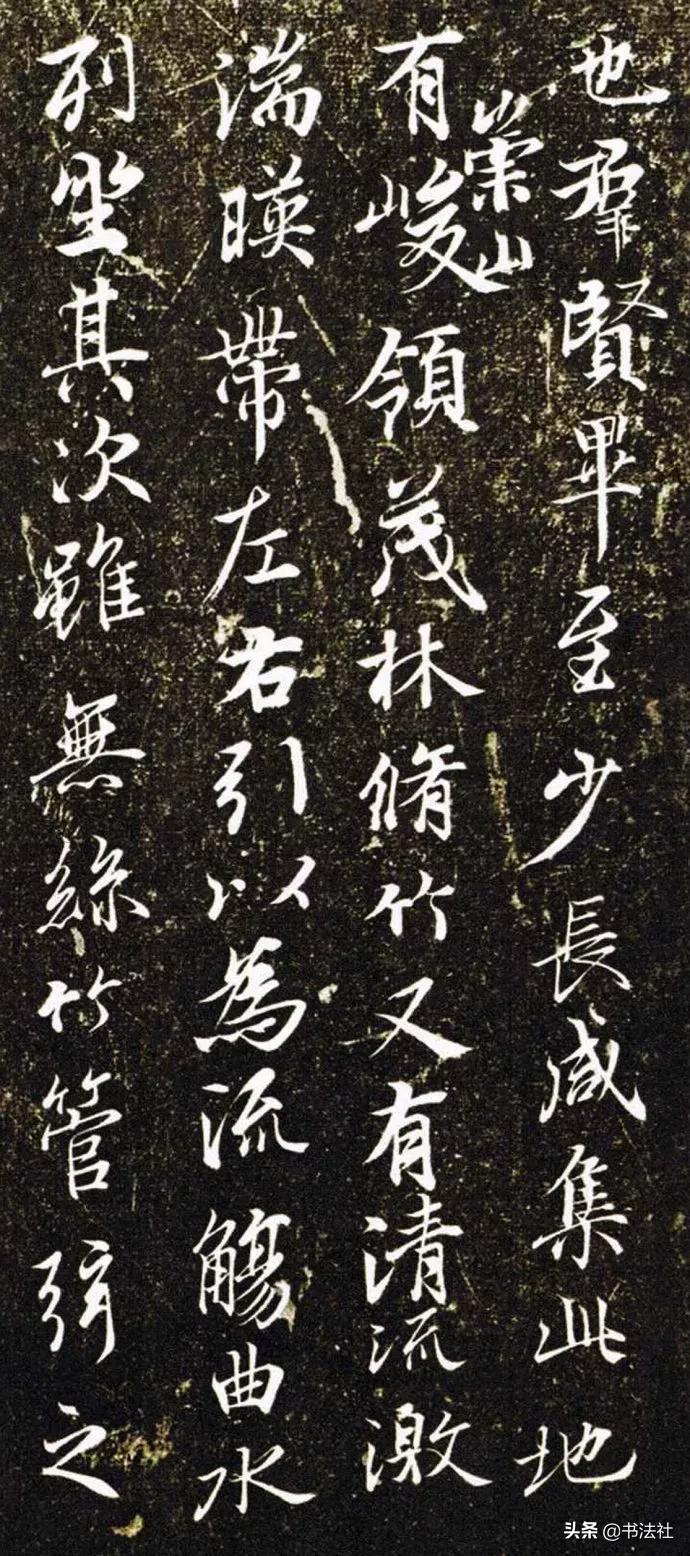 也羣賢畢至少長咸集此地
有崇山峻領茂林脩竹又有清流激
湍暎帶左右引以為流觴曲水
列坐其次雖無絲竹管弦之
头条 @书法社